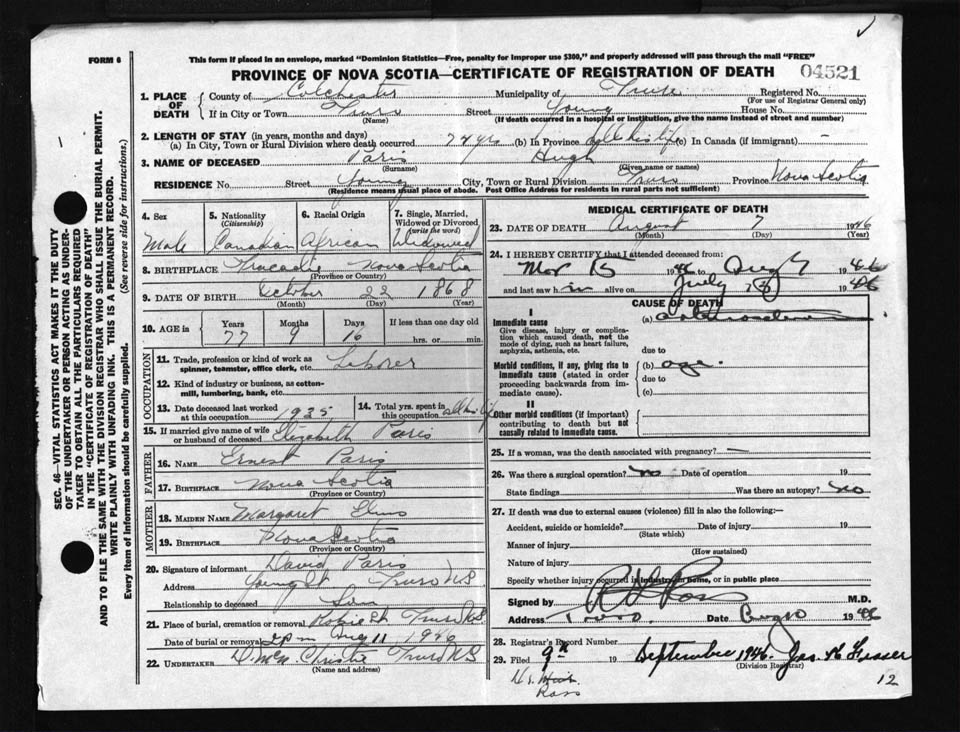 FORM 6
This form if placed in an envelope, marked "Dominion Statistics—Free, penalty for improper use $300," and properly addressed will pass through the mail "FREE"
PROVINCE OF NOVA SCOTIA—CERTIFICATE OF REGISTRATION OF DEATH 04521
1. PLACE OF DEATH
County of Colchester Municipality of Truro Registered No.
(For use of Registrar General only)
If in City or Town Truro Street Young House No.
(Name) (If death occurred in a hospital or institution, give the name instead of street and number)
2. LENGTH OF STAY (in years, months and days)
(a) In City, Town or Rural Division where death occurred 74 yrs (b) In Province all his life (c) In Canada (if immigrant) —
3. NAME OF DECEASED Paris Hugh
(Surname) (Given name or names)
RESIDENCE No. Street Young City, Town or Rural Division Truro Province Nova Scotia
(Residence means usual place of abode. Post Office Address for residents in rural parts not sufficient)
4. Sex
Male
5. Nationality (Citizenship)
Canadian
6. Racial Origin
African
7. Single, Married, Widowed or Divorced (write the word)
Widowed
8. BIRTHPLACE Tracadie Nova Scotia
(Province or Country)
9. DATE OF BIRTH October 22 1868
(Month) (Day) (Year)
10. AGE in
Years Months Days If less than one day old
77 9 16 hrs. or min.
OCCUPATION
11. Trade, profession or kind of work as spinner, teamster, office clerk, etc. Laborer
12. Kind of industry or business, as cotton-mill, lumbering, bank, etc.
13. Date deceased last worked at this occupation 1935
14. Total yrs. spent in this occupation all his life
15. If married give name of wife or husband of deceased Elizabeth Paris
FATHER
16. NAME Ernest Paris
17. BIRTHPLACE Nova Scotia
(Province or Country)
MOTHER
18. MAIDEN NAME Margaret
19. BIRTHPLACE Nova Scotia
(Province or Country)
20. Signature of informant David Paris
Address Young St Truro N.S.
Relationship to deceased Son
21. Place of burial, cremation or removal Robie St Truro N.S.
Date of burial or removal 2 pm Aug 11 1946
22. UNDERTAKER Christie Truro N.S
(Name and address)
MEDICAL CERTIFICATE OF DEATH
23. DATE OF DEATH August 7 1946
(Month) (Day) (Year)
24. I HEREBY CERTIFY that I attended deceased from:
Mar 15 1946 to Aug 7 1946
and last saw him alive on July 1946
CAUSE OF DEATH
I
Immediate cause
Give disease, injury or complication which caused death, not the mode of dying, such as heart failure, asphyxia, asthenia, etc.
(a)
due to
Morbid conditions, if any, giving rise to immediate cause (stated in order proceeding backwards from immediate cause).
(b) age.
due to
(c)
II
Other morbid conditions (if important) contributing to death but not causally related to immediate cause.
25. If a woman, was the death associated with pregnancy? —
26. Was there a surgical operation? no Date of operation 19
State findings Was there an autopsy? no
27. If death was due to external causes (violence) fill in also the following:—
Accident, suicide or homicide? Date of injury 19
(State which)
Manner of injury
(How sustained)
Nature of injury
Specify whether injury occurred in industry, in home, or in public place
Signed by Ross M.D.
Address Truro. Date Aug 10 1946
28. Registrar's Record Number
29. Filed 9th 19 September 1946. Jas. Fraser
(Division Registrar)
Ross
12
SEC. 46—VITAL STATISTICS ACT MAKES IT THE DUTY
OF THE UNDERTAKER OR PERSON ACTING AS UNDER-
TAKER TO OBTAIN ALL THE PARTICULARS REQUIRED
IN THE "CERTIFICATE OF REGISTRATION OF DEATH"
AND TO FILE THE SAME WITH THE DIVISION REGISTRAR WHO SHALL ISSUE THE BURIAL PERMIT.
WRITE PLAINLY WITH UNFADING INK—THIS IS A PERMANENT RECORD.
Every item of information should be carefully supplied. (See reverse side for instructions.)